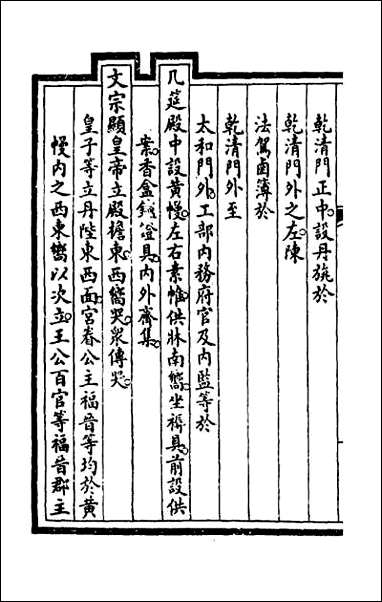 乾清門正中設丹旐於
乾清門外之左陳
法駕鹵簿於
乾清門外至
太和門外工部內務府官及內監等於
几筵殿中設黃幔左右素帷供牀南嚮坐褥具前設供
案香盒鐙具內外齊集
文宗顯皇帝立殿簷東西嚮哭眾傳哭
皇子等立丹陛東西面宮眷公主福晉等均於黃
幔內之西東嚮以次立王公百官等福晉郡主